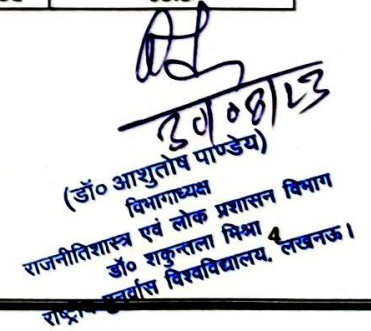 30/08/23
(डॉ० आशुतोष पाण्डेय)
विभागाध्यक्ष
राजनीतिशास्त्र एवं लोक प्रशासन विभाग
डॉ० शकुन्तला मिश्रा
राष्ट्रीय पुनर्वास विश्वविद्यालय, लखनऊ।